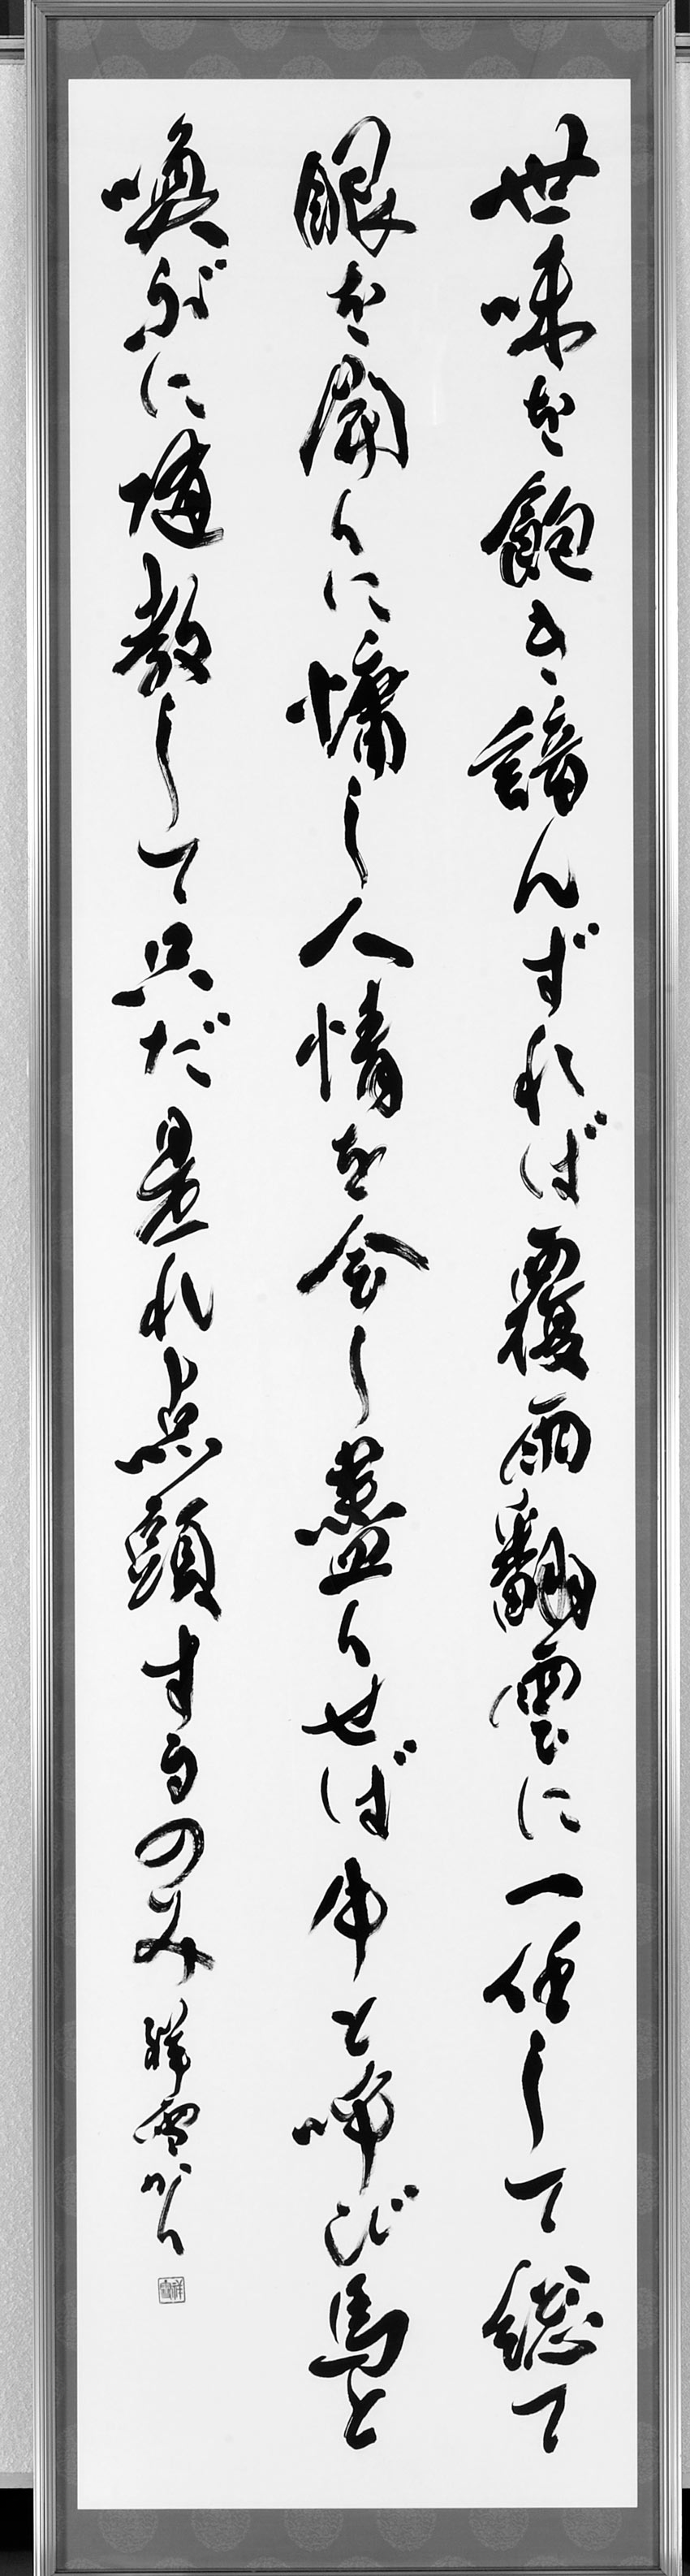 世味を飽き諳んずれば覆雨翻雲に一任して総て
眼を開くに慵し人情を会し盡くせば牛と呼び馬と
喚ぶに随教して只だ是れ点頭するのみ 祥雪かく